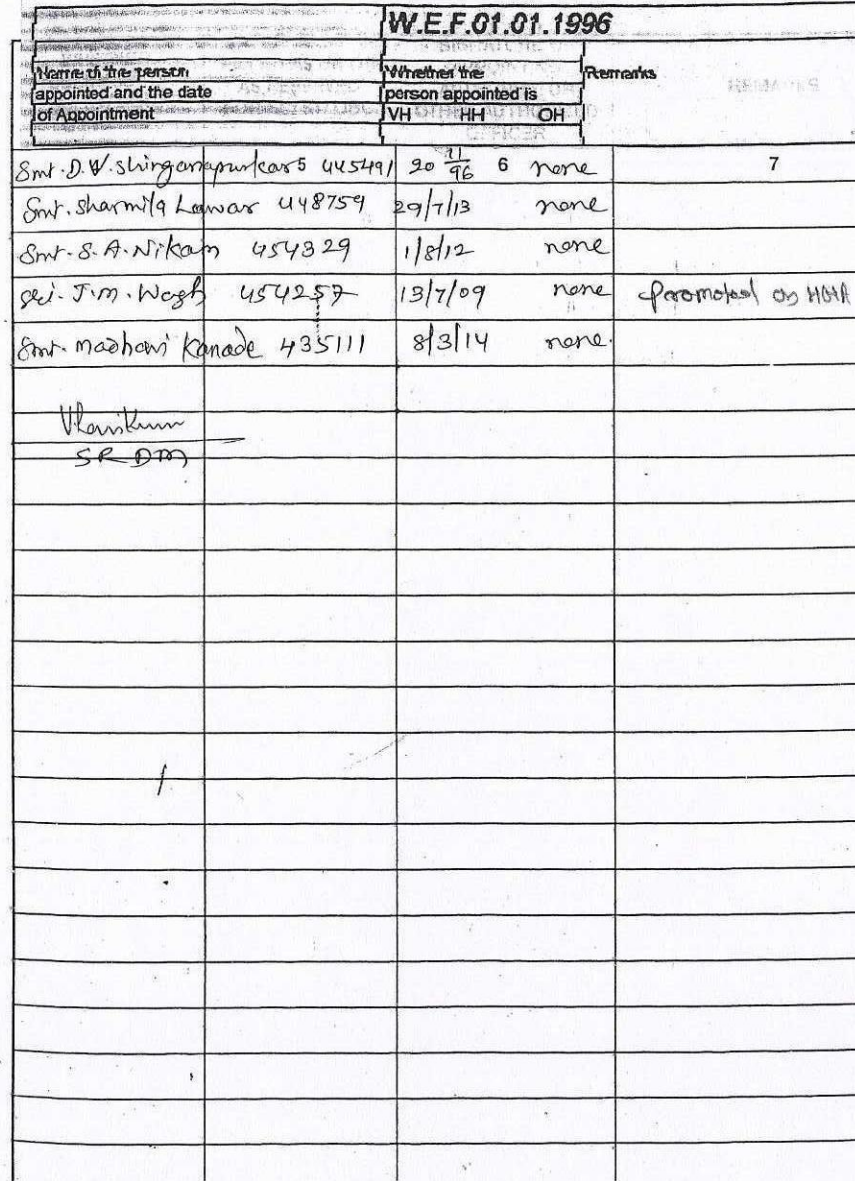 W.E.F.01.01.1996
Name of the person Whether the Remarks
appointed and the date person appointed is
of Appointment VH HH OH
Smt. D.V. Shinganapurkar 5 445491 20 11/96 6 none 7
Smt. Sharmila Lawar 448759 29/7/13 none
Smt. S. A. Nikam 454329 1/8/12 none
Sri. J.M. Wagh 454257 13/7/09 none Promoted as HGA
Smt. Madhavi Kanade 435111 8/3/14 none.
SR DM